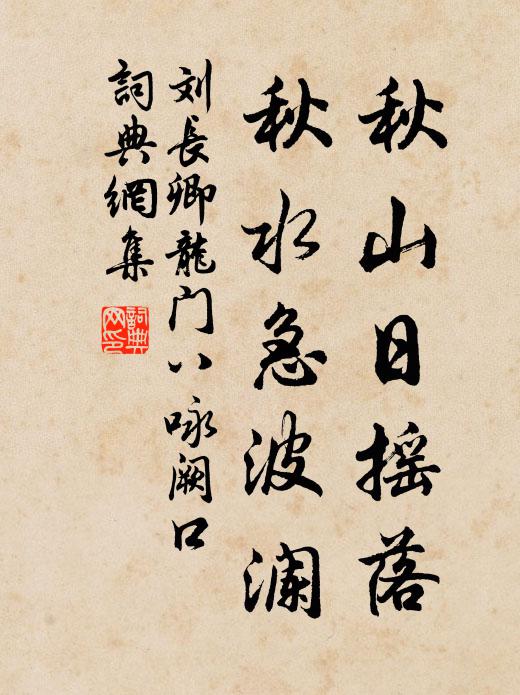 秋山日摇落
秋水急波澜
刘長卿龍门八咏阙口
詞典網集
詞典网印